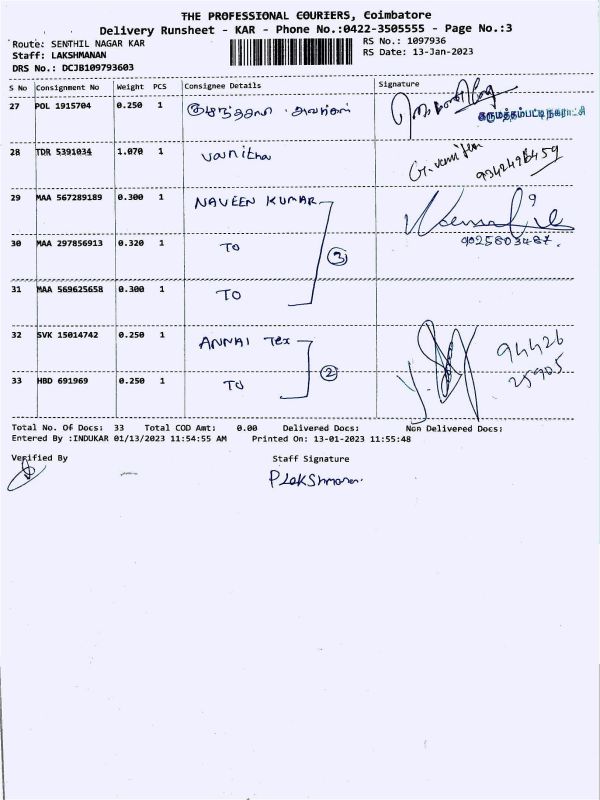 THE PROFESSIONAL COURIERS, Coimbatore
Delivery Runsheet - KAR - Phone No.:0422-3505555 - Page No.:3
Route: SENTHIL NAGAR KAR
RS No.: 1097936
Staff: LAKSHMANAN
RS Date: 13-Jan-2023
DRS No.: DCJB109793603
S No Consignment No Weight PCS Consignee Details Signature
27 POL 1915704 0.250 1
கருமத்தம்பட்டி நகராட்சி
28 TDR 5391034 1.070 1 vanitha
29 MAA 567289189 0.300 1 NAVEEN KUMAR
9025803487.
30 MAA 297856913 0.320 1 TO 3
31 MAA 569625658 0.300 1 TO
32 SVK 15014742 0.250 1 ANNAI Tex
94426
25905
33 HBD 691969 0.250 1 TO 2
Total No. Of Docs: 33 Total COD Amt: 0.00 Delivered Docs: Non Delivered Docs:
Entered By :INDUKAR 01/13/2023 11:54:55 AM Printed On: 13-01-2023 11:55:48
Verified By Staff Signature
P Lakshmanan.